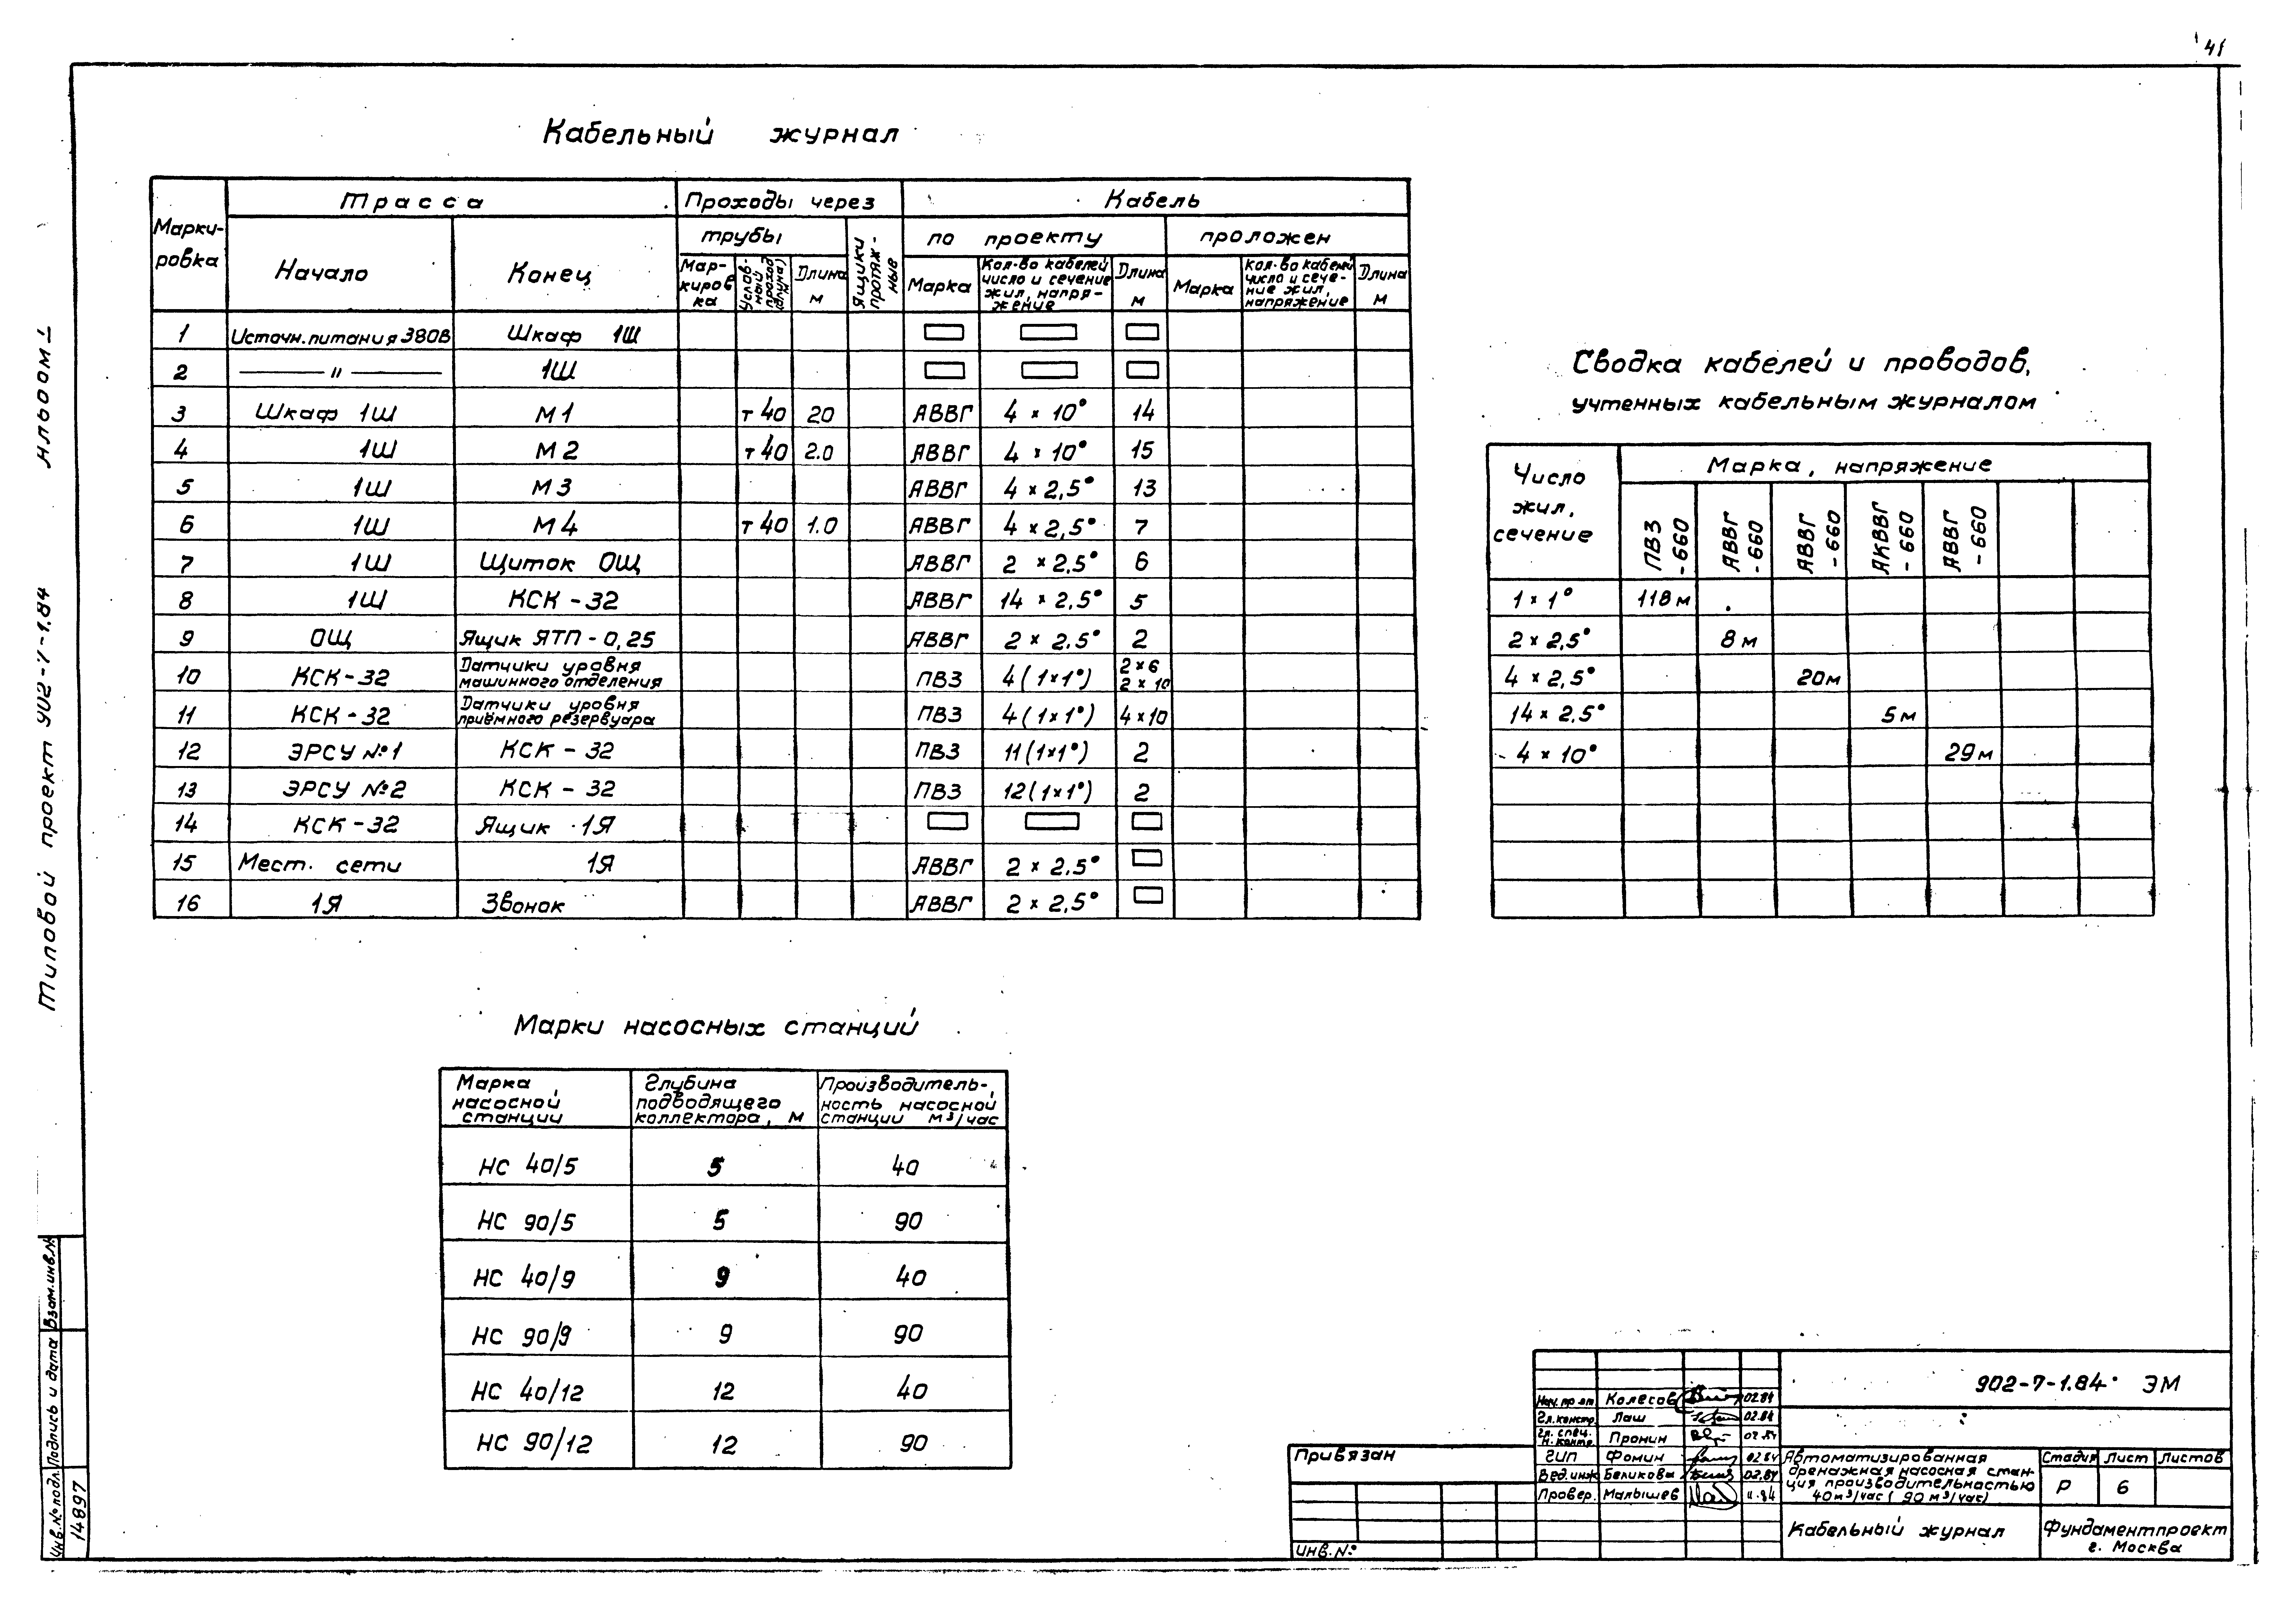 41
Кабельный журнал
Марки-
ровка
Трасса
Проходы через
Кабель
Начало
Конец
трубы
Ящики
протяж-
ные
по проекту
проложен
Мар-
киров
ка
Услов-
ный
проход
(длина)
Длина
м
Марка
Кол-во кабелей
число и сечение
жил, напря-
жение
Длина
м
Марка
Кол-во кабелей
число и сече-
ние жил,
напряжение
Длина
м
1 Источн.питания 380В Шкаф 1Ш
2 — " — 1Ш
3 Шкаф 1Ш М1 т 40 20 АВВГ 4 × 10° 14
4 1Ш М2 т 40 2.0 АВВГ 4 × 10° 15
5 1Ш М3 АВВГ 4 × 2,5° 13
6 1Ш М4 т 40 1.0 АВВГ 4 × 2,5° 7
7 1Ш Щиток ОЩ АВВГ 2 × 2.5° 6
8 1Ш КСК-32 АВВГ 14 × 2.5° 5
9 ОЩ Ящик ЯТП-0,25 АВВГ 2 × 2.5° 2
10 КСК-32 Датчики уровня
машинного отделения ПВ3 4(1×1°) 2×6
2×10
11 КСК-32 Датчики уровня
приёмного резервуара ПВ3 4(1×1°) 4×10
12 ЭРСУ №1 КСК-32 ПВ3 11(1×1°) 2
13 ЭРСУ №2 КСК-32 ПВ3 12(1×1°) 2
14 КСК-32 Ящик 1Я
15 Мест. сети 1Я АВВГ 2 × 2.5°
16 1Я Звонок АВВГ 2 × 2,5°
Сводка кабелей и проводов,
учтенных кабельным журналом
Число
жил,
сечение
Марка, напряжение
ПВ3
-660
АВВГ
-660
АВВГ
-660
АКВВГ
-660
АВВГ
-660
1×1° 118м
2×2,5° 8м
4×2,5° 20м
14×2.5° 5м
4×10° 29м
Марки насосных станций
Марка
насосной
станции
Глубина
подводящего
коллектора, м
Производитель-
ность насосной
станции м³/час
НС 40/5 5 40
НС 90/5 5 90
НС 40/9 9 40
НС 90/9 9 90
НС 40/12 12 40
НС 90/12 12 90
Типовой проект 902-7-1.84 Альбом I
Взам.инв.№
Подпись и дата
Инв.№подл.
14897
Привязан
Инв.№
Нач. пр от Колесов 02.84
Гл.констр. Лаш 02.84
Гл. спец.
Н. контр. Пронин 02.84
ГИП Фомин 02.84
Вед.инж Беликова 02.84
Провер. Малышев 11.84
902-7-1.84 ЭМ
Автоматизированная
дренажная насосная стан-
ция производительностью
40м³/час (90 м³/час)
Стадия Лист Листов
Р 6
Кабельный журнал
Фундаментпроект
г. Москва